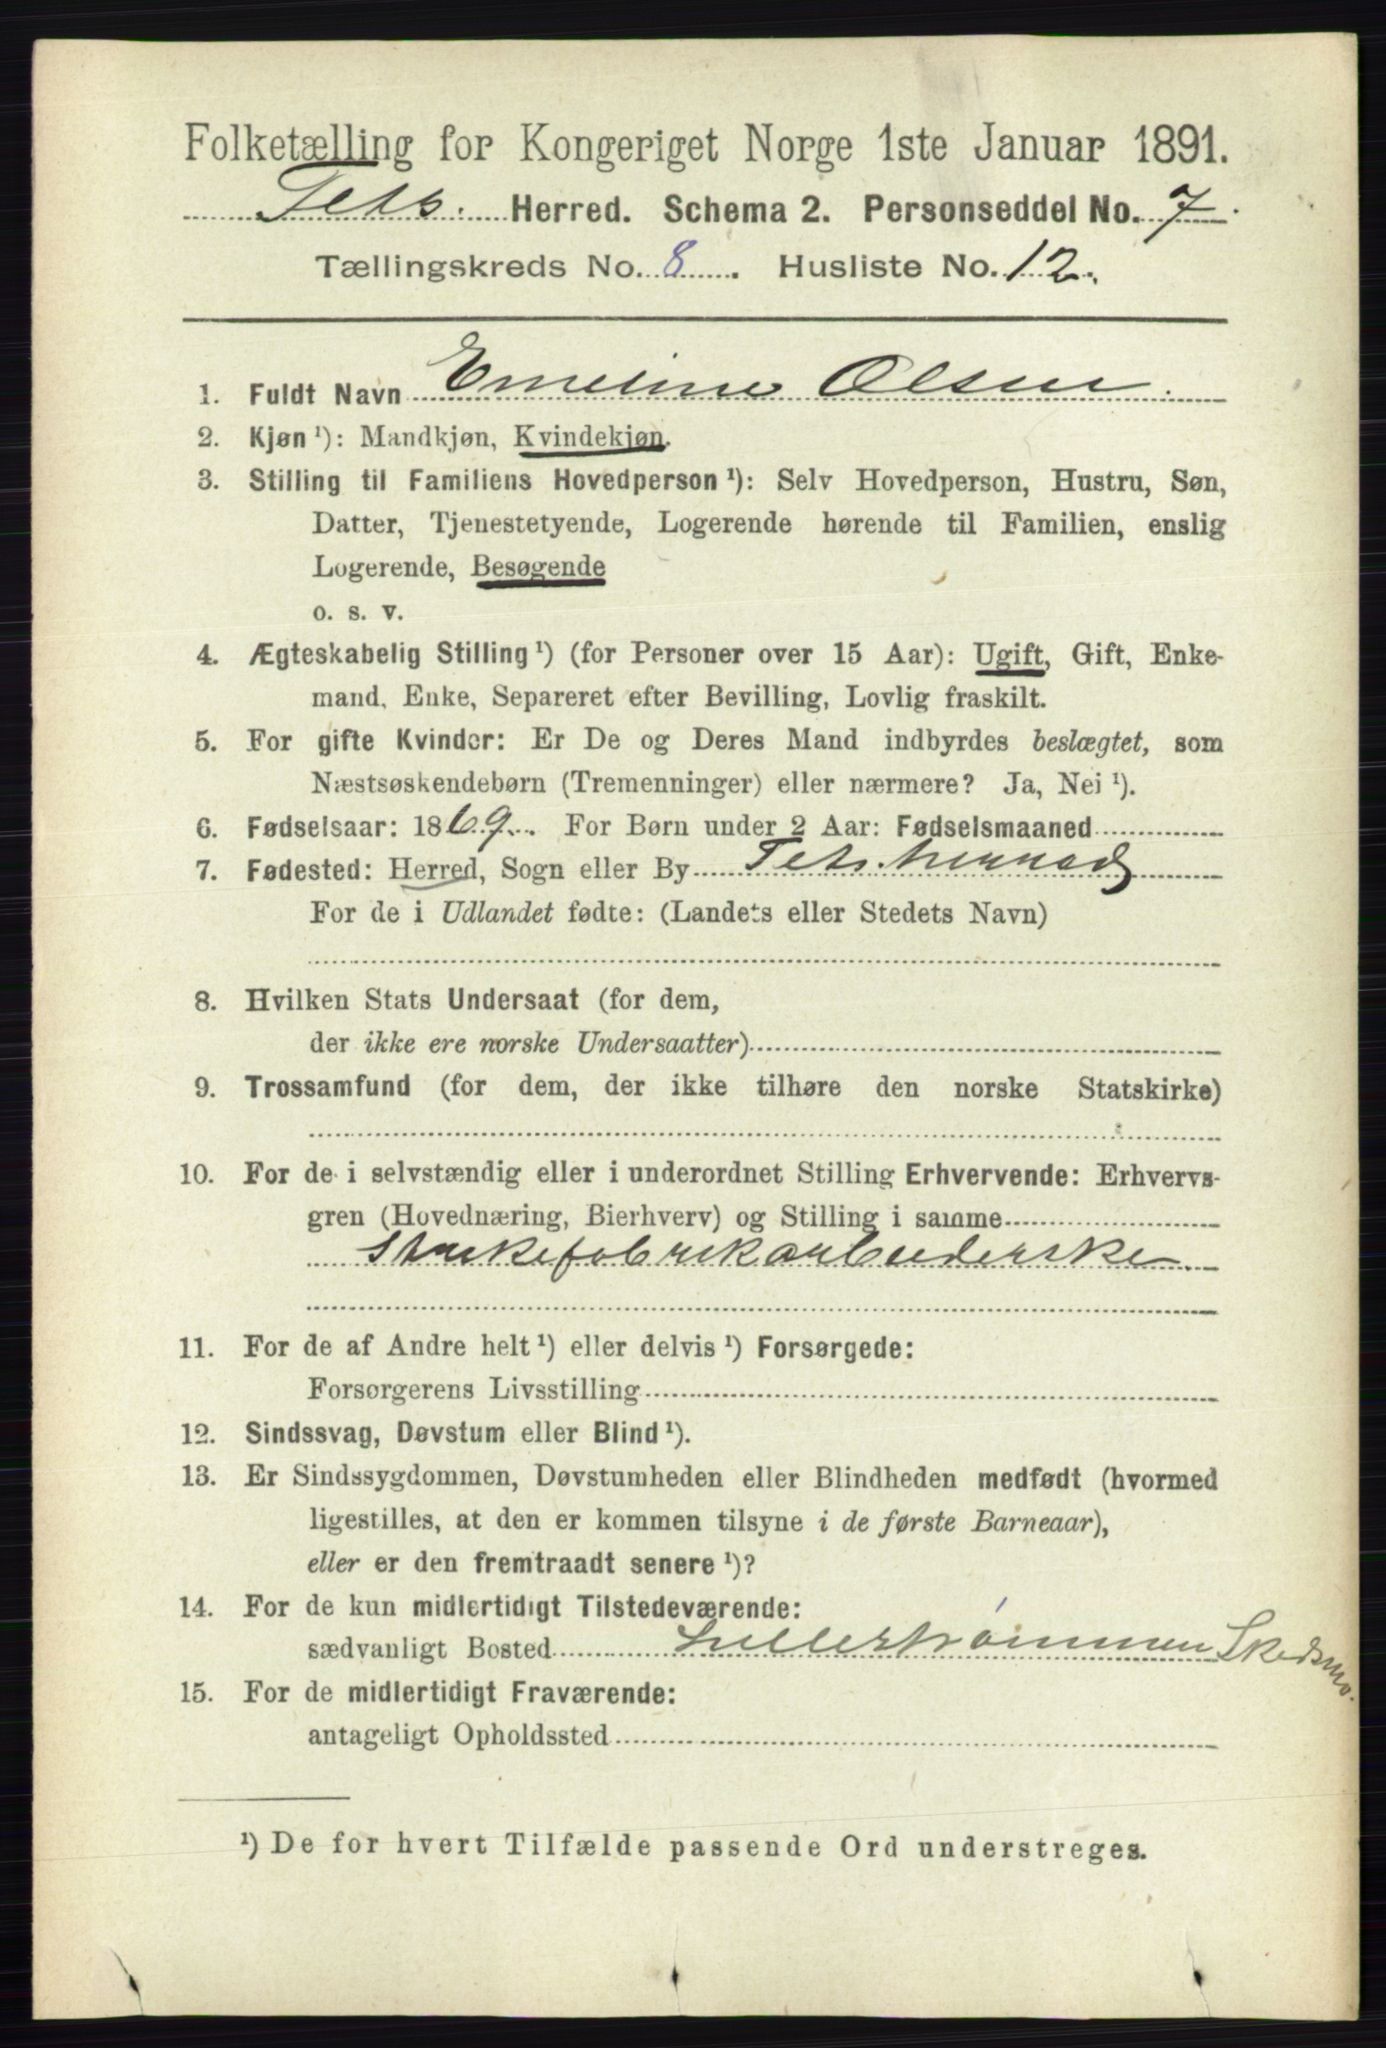 Folketælling for Kongeriget Norge 1ste Januar 1891.
Fets. Herred. Schema 2. Personseddel No. 7.
Tællingskreds No. 8. Husliste No. 12.
1. Fuldt Navn Emeline Olsen.
2. Kjøn ¹): Mandkjøn, Kvindekjøn.
3. Stilling til Familiens Hovedperson ¹): Selv Hovedperson, Hustru, Søn,
Datter, Tjenestetyende, Logerende hørende til Familien, enslig
Logerende, Besøgende
o. s. v.
4. Ægteskabelig Stilling ¹) (for Personer over 15 Aar): Ugift, Gift, Enke-
mand, Enke, Separeret efter Bevilling, Lovlig fraskilt.
5. For gifte Kvinder: Er De og Deres Mand indbyrdes beslægtet, som
Næstsøskendebørn (Tremenninger) eller nærmere? Ja, Nei ¹).
6. Fødselsaar: 1869. For Børn under 2 Aar: Fødselsmaaned
7. Fødested: Herred, Sogn eller By Fets herred
For de i Udlandet fødte: (Landets eller Stedets Navn)
8. Hvilken Stats Undersaat (for dem,
der ikke ere norske Undersaatter)
9. Trossamfund (for dem, der ikke tilhøre den norske Statskirke)
10. For de i selvstændig eller i underordnet Stilling Erhvervende: Erhvervs-
gren (Hovednæring, Bierhverv) og Stilling i samme
11. For de af Andre helt ¹) eller delvis ¹) Forsørgede:
Forsørgerens Livsstilling
12. Sindssvag, Døvstum eller Blind ¹).
13. Er Sindssygdommen, Døvstumheden eller Blindheden medfødt (hvormed
ligestilles, at den er kommen tilsyne i de første Barneaar),
eller er den fremtraadt senere ¹)?
14. For de kun midlertidigt Tilstedeværende:
sædvanligt Bosted Lillestrømmen Skedsmo.
15. For de midlertidigt Fraværende:
antageligt Opholdssted
¹) De for hvert Tilfælde passende Ord understreges.